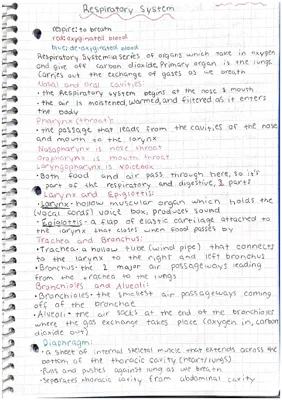 Respiratory System
respire: to breath
red: oxyginated blood
blue: de-oxyginated blood
Respiratory System: a series of organs which take in oxygen
and give off carbon dioxide, Primary organ is the lungs
Carries out the exchange of gases as we breath
Nasal and Oral cavities:
• the Respiratory system begins at the nose & mouth
• the air is moistened, warmed, and filtered as it enters
the body
Pharynx (throat):
• the passage that leads from the cavities of the nose
and mouth to the larynx
Nasopharynx is nose throat
Oropharynx is mouth throat
Laryngopharynx is voicebox
• Both food and air pass through here, so it's
part of the respiratory and digestive, 2 parts
Larynx and Epiglottis:
• Larynx - hollow muscular organ which holds the
(vocal cords) voice box, produces sound
• Epiglottis - a flap of elastic cartilage attached to
the larynx that closes when food passes by
Trachea and Bronchus:
• Trachea - a hollow tube (wind pipe) that connects
to the larynx to right and left bronchus
• Bronchus - the 2 major air passageways leading
from the trachea to the lungs
Bronchioles and Alveoli:
• Bronchioles - the smallest air passageways coming
off of the bronchae
• Alveoli - the air sacks at the end of the bronchioles
where the gas exchange takes place (oxygen in, carbon
dioxide out)
Diaphragm:
• a sheet of internal skeletal muscle that extends across the
bottom of the thoracic cavity (heart/lungs)
• Pulls and pushes against lung as we breath
• Separates thoracic cavity from abdominal cavity